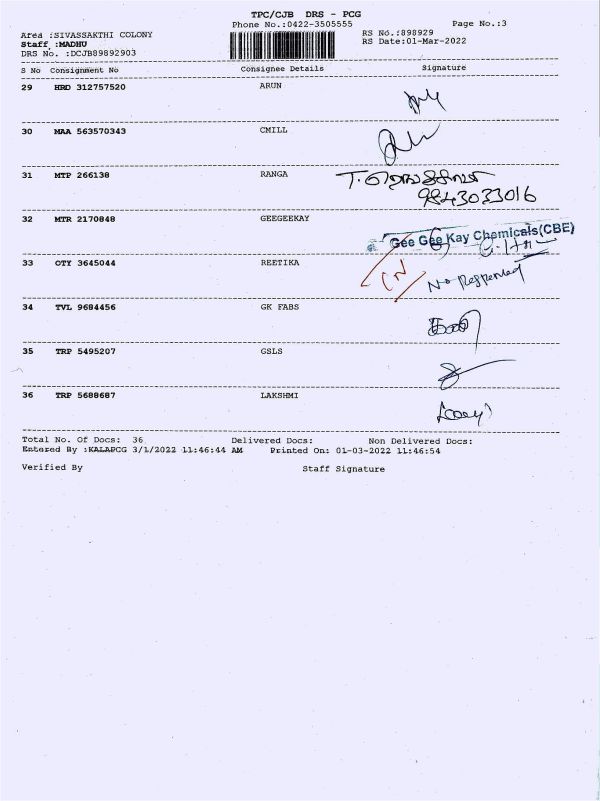 TPC/CJB DRS - PCG
Phone No.:0422-3505555 Page No.:3
Area :SIVASSAKTHI COLONY RS No.:898929
Staff :MADHU RS Date:01-Mar-2022
DRS No. :DCJB89892903
S No Consignment No Consignee Details Signature
29 HRD 312757520 ARUN
30 MAA 563570343 CMILL
31 MTP 266138 RANGA
9843033016
32 MTR 2170848 GEEGEEKAY
Gee Gee Kay Chemicals(CBE)
33 OTY 3645044 REETIKA
CN No Responed
34 TVL 9684456 GK FABS
35 TRP 5495207 GSLS
36 TRP 5688687 LAKSHMI
Total No. Of Docs: 36 Delivered Docs: Non Delivered Docs:
Entered By :KALAPCG 3/1/2022 11:46:44 AM Printed On: 01-03-2022 11:46:54
Verified By Staff Signature